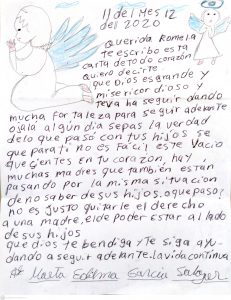 11 del Mes 12
del 2020
Querida Romela
te escribo esta
carta de todo corazón
quiero decirte
que Dios es grande y
misericordioso y
teva ha seguir dando
mucha fortaleza para seguir adelante
ojala algun dia sepas la verdad
delo que pasó con tus hijos se
que para ti no es Fácil este Vacio
que cientes En tu corazon, hay
muchas madres que tambien estan
pasando por la misma situacion
de no saber de sus hijos. aque paso!
no es justo quitarle el derecho
a una madre, el de poder Estar al lado
de sus hijos
que dios te bendiga y te siga ayu-
dando a seguir adelante. la vida continua
Att Marta Edilma Garcia